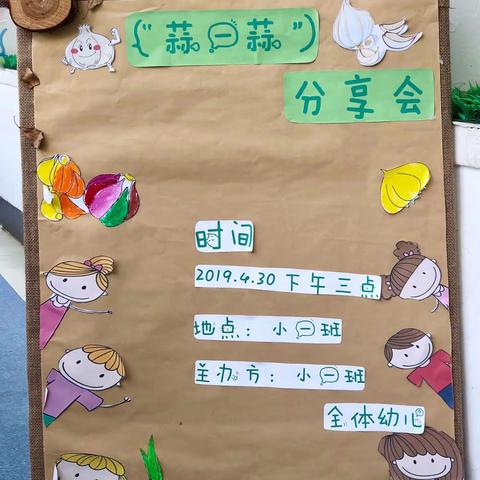 ("蒜一蒜")
分享会
时间
2019.4.30下午三点
地点：小一班
主办方：小一班
全体幼儿